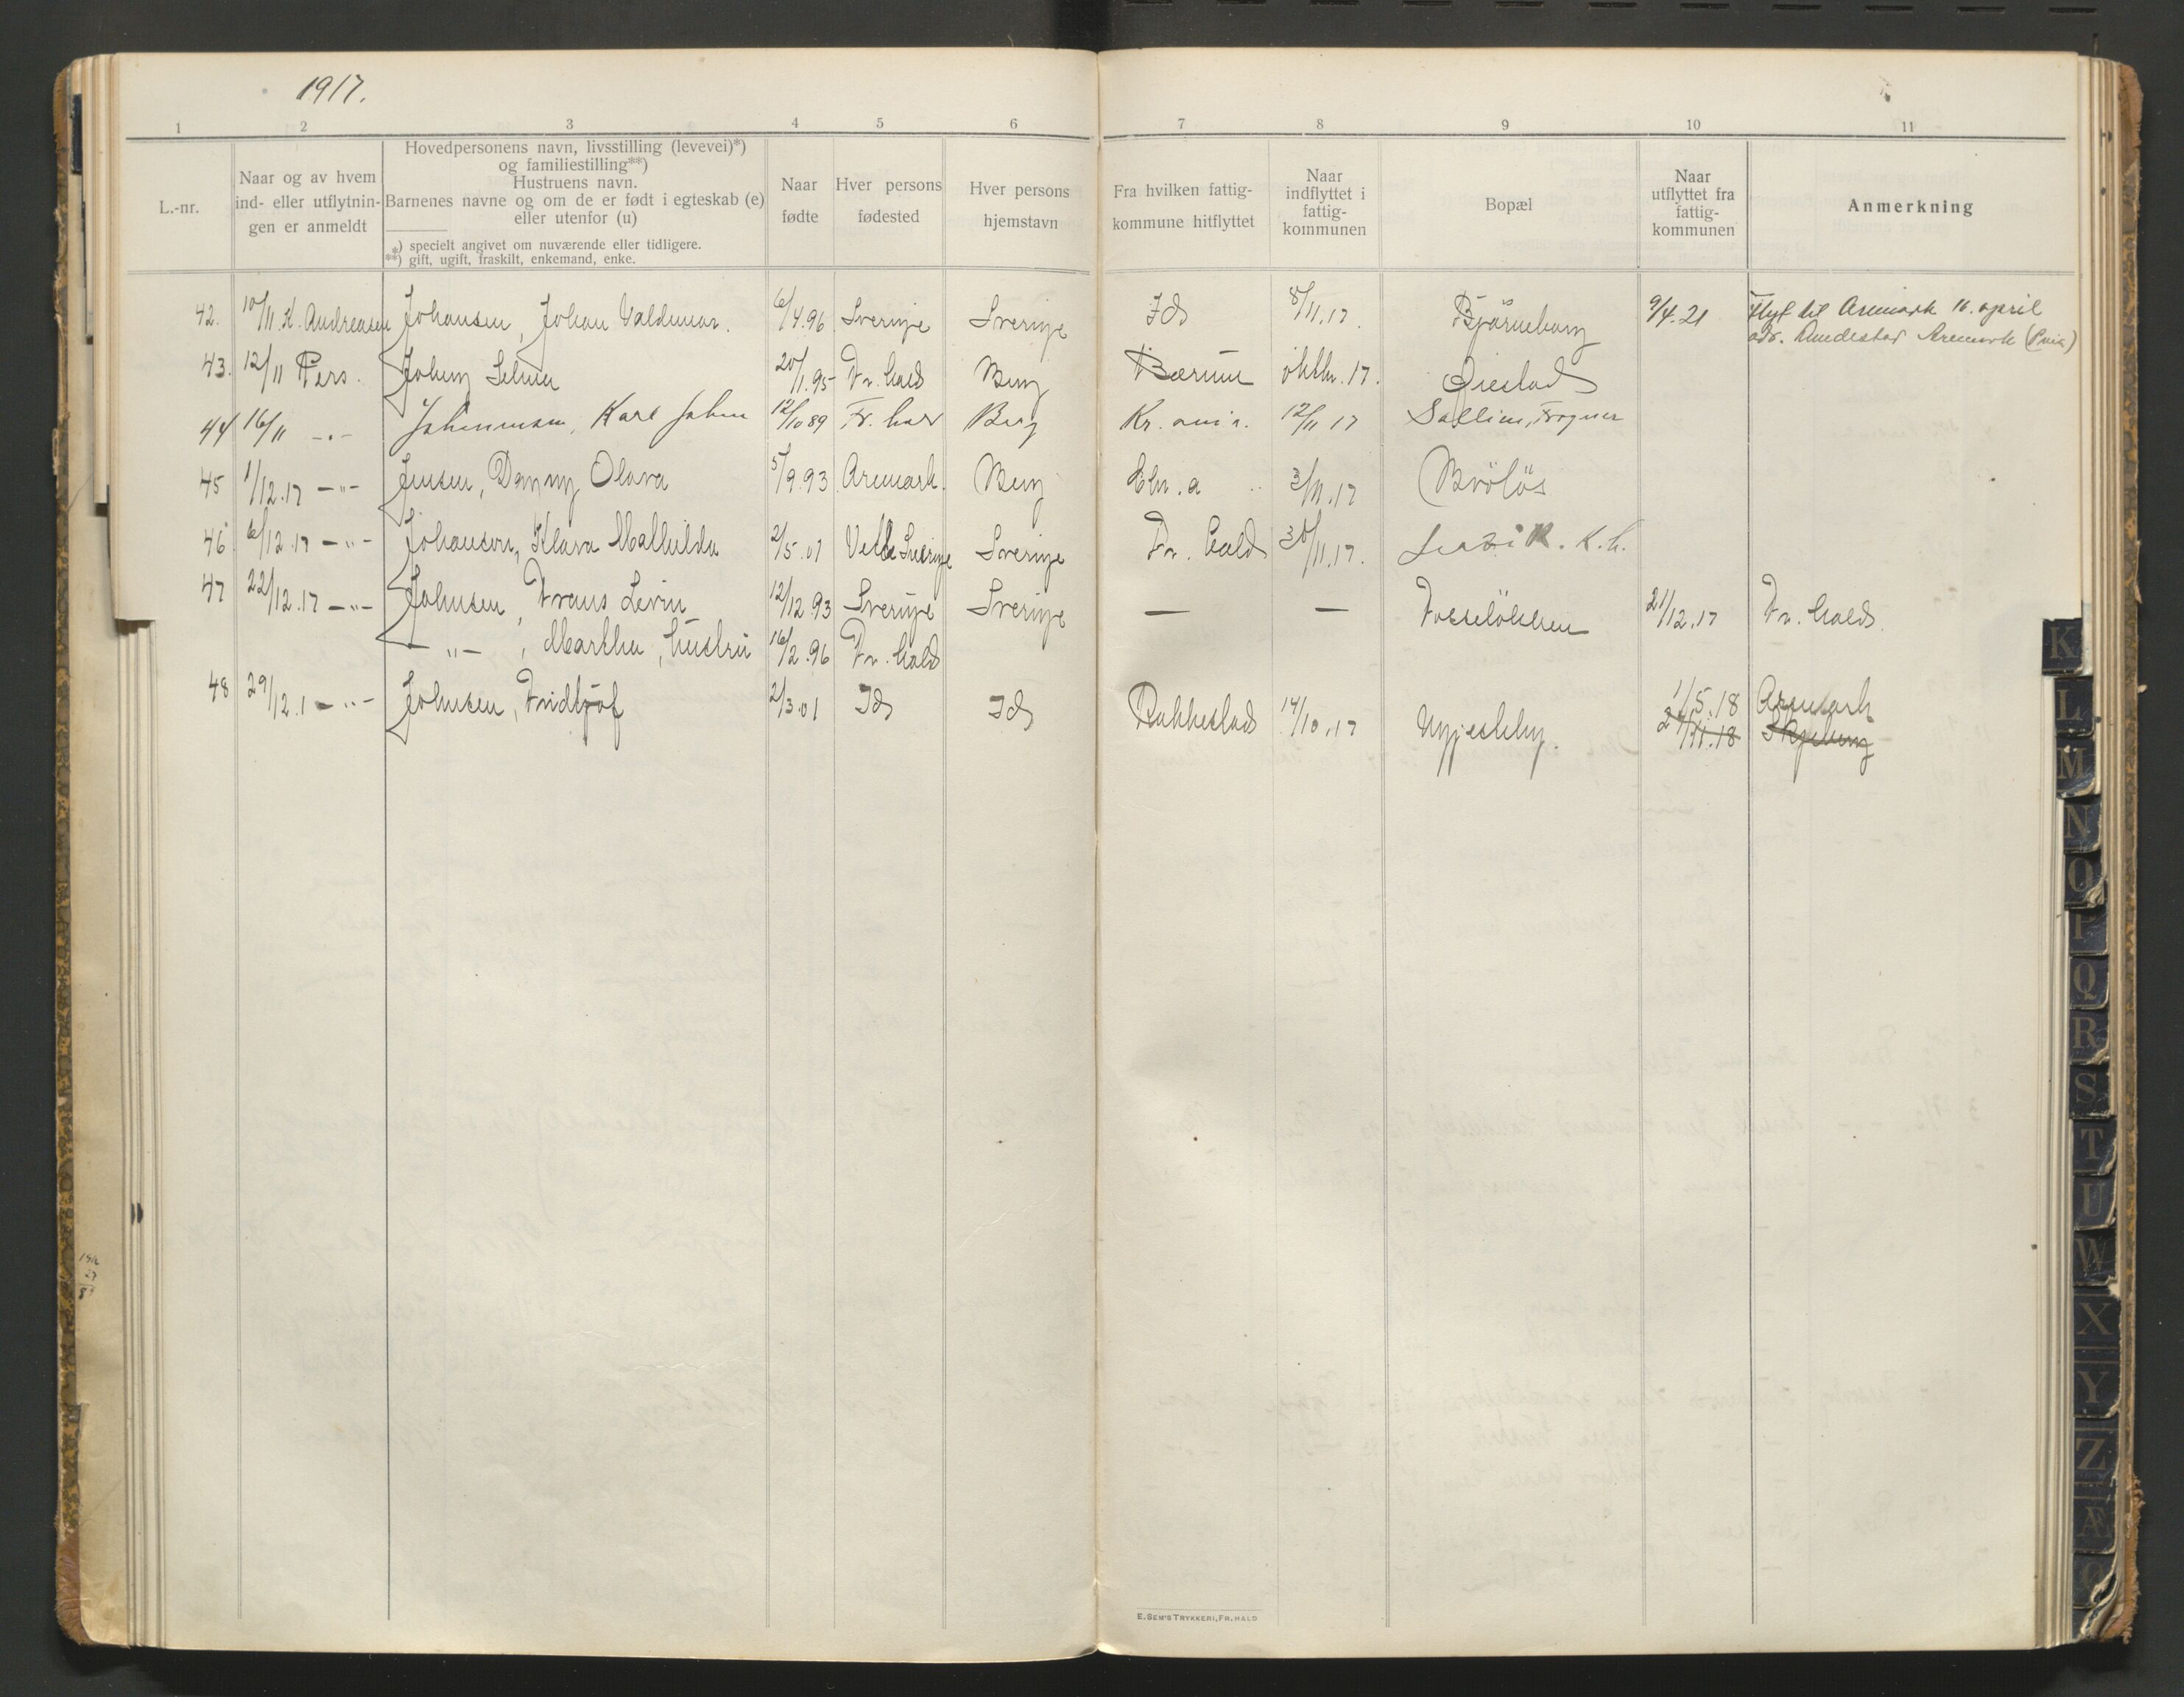 1917.
1 2 3 4 5 6 7 8 9 10 11
L.-nr.
Naar og av hvem
ind- eller utflytnin-
gen er anmeldt
Hovedpersonens navn, livsstilling (levevei)*)
og familiestilling**)
Hustruens navn.
Barnenes navne og om de er født i egteskab (e)
eller utenfor (u)
*) specielt angivet om nuværende eller tidligere.
**) gift, ugift, fraskilt, enkemand, enke.
Naar
fødte
Hver persons
fødested
Hver persons
hjemstavn
Fra hvilken fattig-
kommune hitflyttet
Naar
indflyttet i
fattig-
kommunen
Bopæl
Naar
utflyttet fra
fattig-
kommunen
Anmerkning
42. 10/11 K. Andreasen Johansen, Johan Valdemar. 6/4.96 Sverige Sverige Id 8/11.17. Bjørneborg 9/4.21 Flyt til Aremark 16. april
adr. Aremark
43. 12/11 Pers. Johng Selma 20/11.95 Fr. hald Berg Bærum oktbr. 17.
44 16/11 -"- Johannesen, Karl Johan 12/10 89 Fr. hald Berg Kr. ania. 12/11 17 Sollin, Frogner
45 1/12.17 -"- Jensen, Dagny Olava 5/9.93 Aremark. Berg Chr. a 3/11.17 Brölös
46 6/12.17 -"- Johanson, Klara Mathilda 2/5.01 Sverige Sverige Fr. hald 30/11.17. K. h.
47 22/12.17 -"- Johnsen, Frans Levin 12/12 93 Sverige Sverige — — Fosseløkken 21/12.17 Fr. hald.
-"-, Martha, hustru 16/2.96 Fr. hald
48 29/12.1 -"- Johnsen, Fridtjof 2/3.01 Id Id Rakkestad 14/10.17 1/5.18 Aremark
11.18 Skjeberg
E. SEM'S TRYKKERI, FR. HALD
K
L
M
N
O
P
Q
R
S
T
U
W
X
Y
Z
Æ